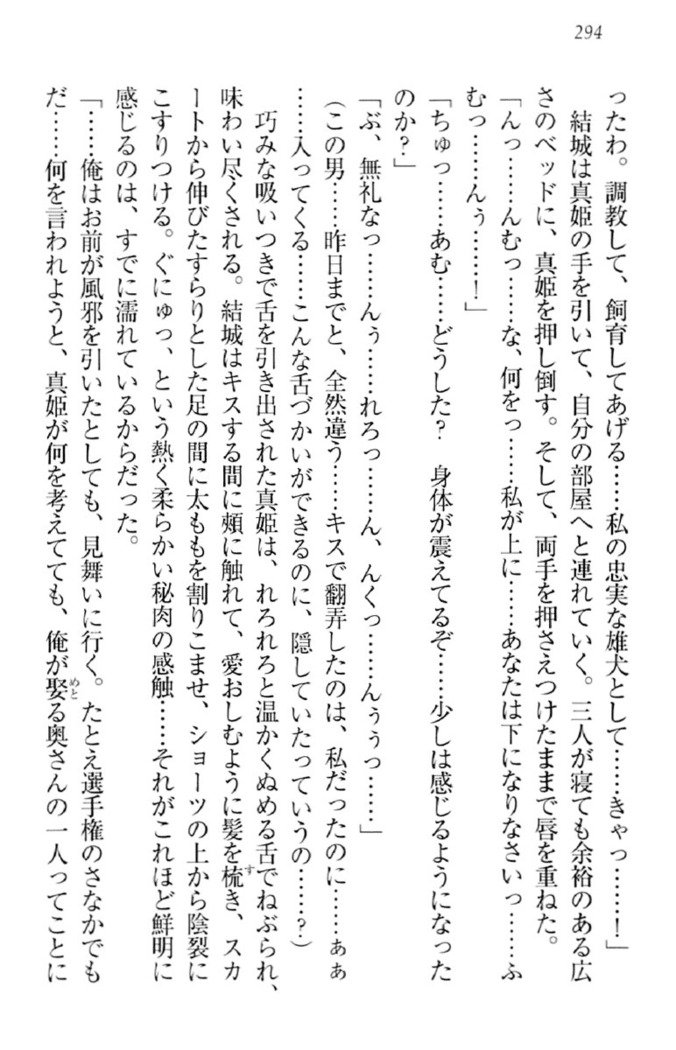 294
ったわ。調教して、飼育してあげる……私の忠実な雄犬として……きゃっ……！」
　結城は真姫の手を引いて、自分の部屋へと連れていく。三人が寝ても余裕のある広
さのベッドに、真姫を押し倒す。そして、両手を押さえつけたままで唇を重ねた。
「んっ……んむっ……な、何をっ……私が上に……あなたは下になりなさいっ……ふ
むっ……んぅ……！」
「ちゅっ……あむ……どうした？　身体が震えてるぞ……少しは感じるようになった
のか？」
「ぶ、無礼なっ……んぅ……れろっ……ん、んくっ……んぅぅっ……」
（この男……昨日までと、全然違う……キスで翻弄したのは、私だったのに……ぁぁ
……入ってくる……こんな舌づかいができるのに、隠していたっていうの……？）
　巧みな吸いつきで舌を引き出された真姫は、れろれろと温かくぬめる舌でねぶられ、
味わい尽くされる。結城はキスする間に頬に触れて、愛おしむように髪を梳き、スカ
ートから伸びたすらりとした足の間に太ももを割りこませ、ショーツの上から陰裂に
こすりつける。ぐにゅっ、という熱く柔らかい秘肉の感触……それがこれほど鮮明に
感じるのは、すでに濡れているからだった。
「……俺はお前が風邪を引いたとしても、見舞いに行く。たとえ選手権のさなかでも
だ……何を言われようと、真姫が何を考えてても、俺が娶る奥さんの一人ってことに